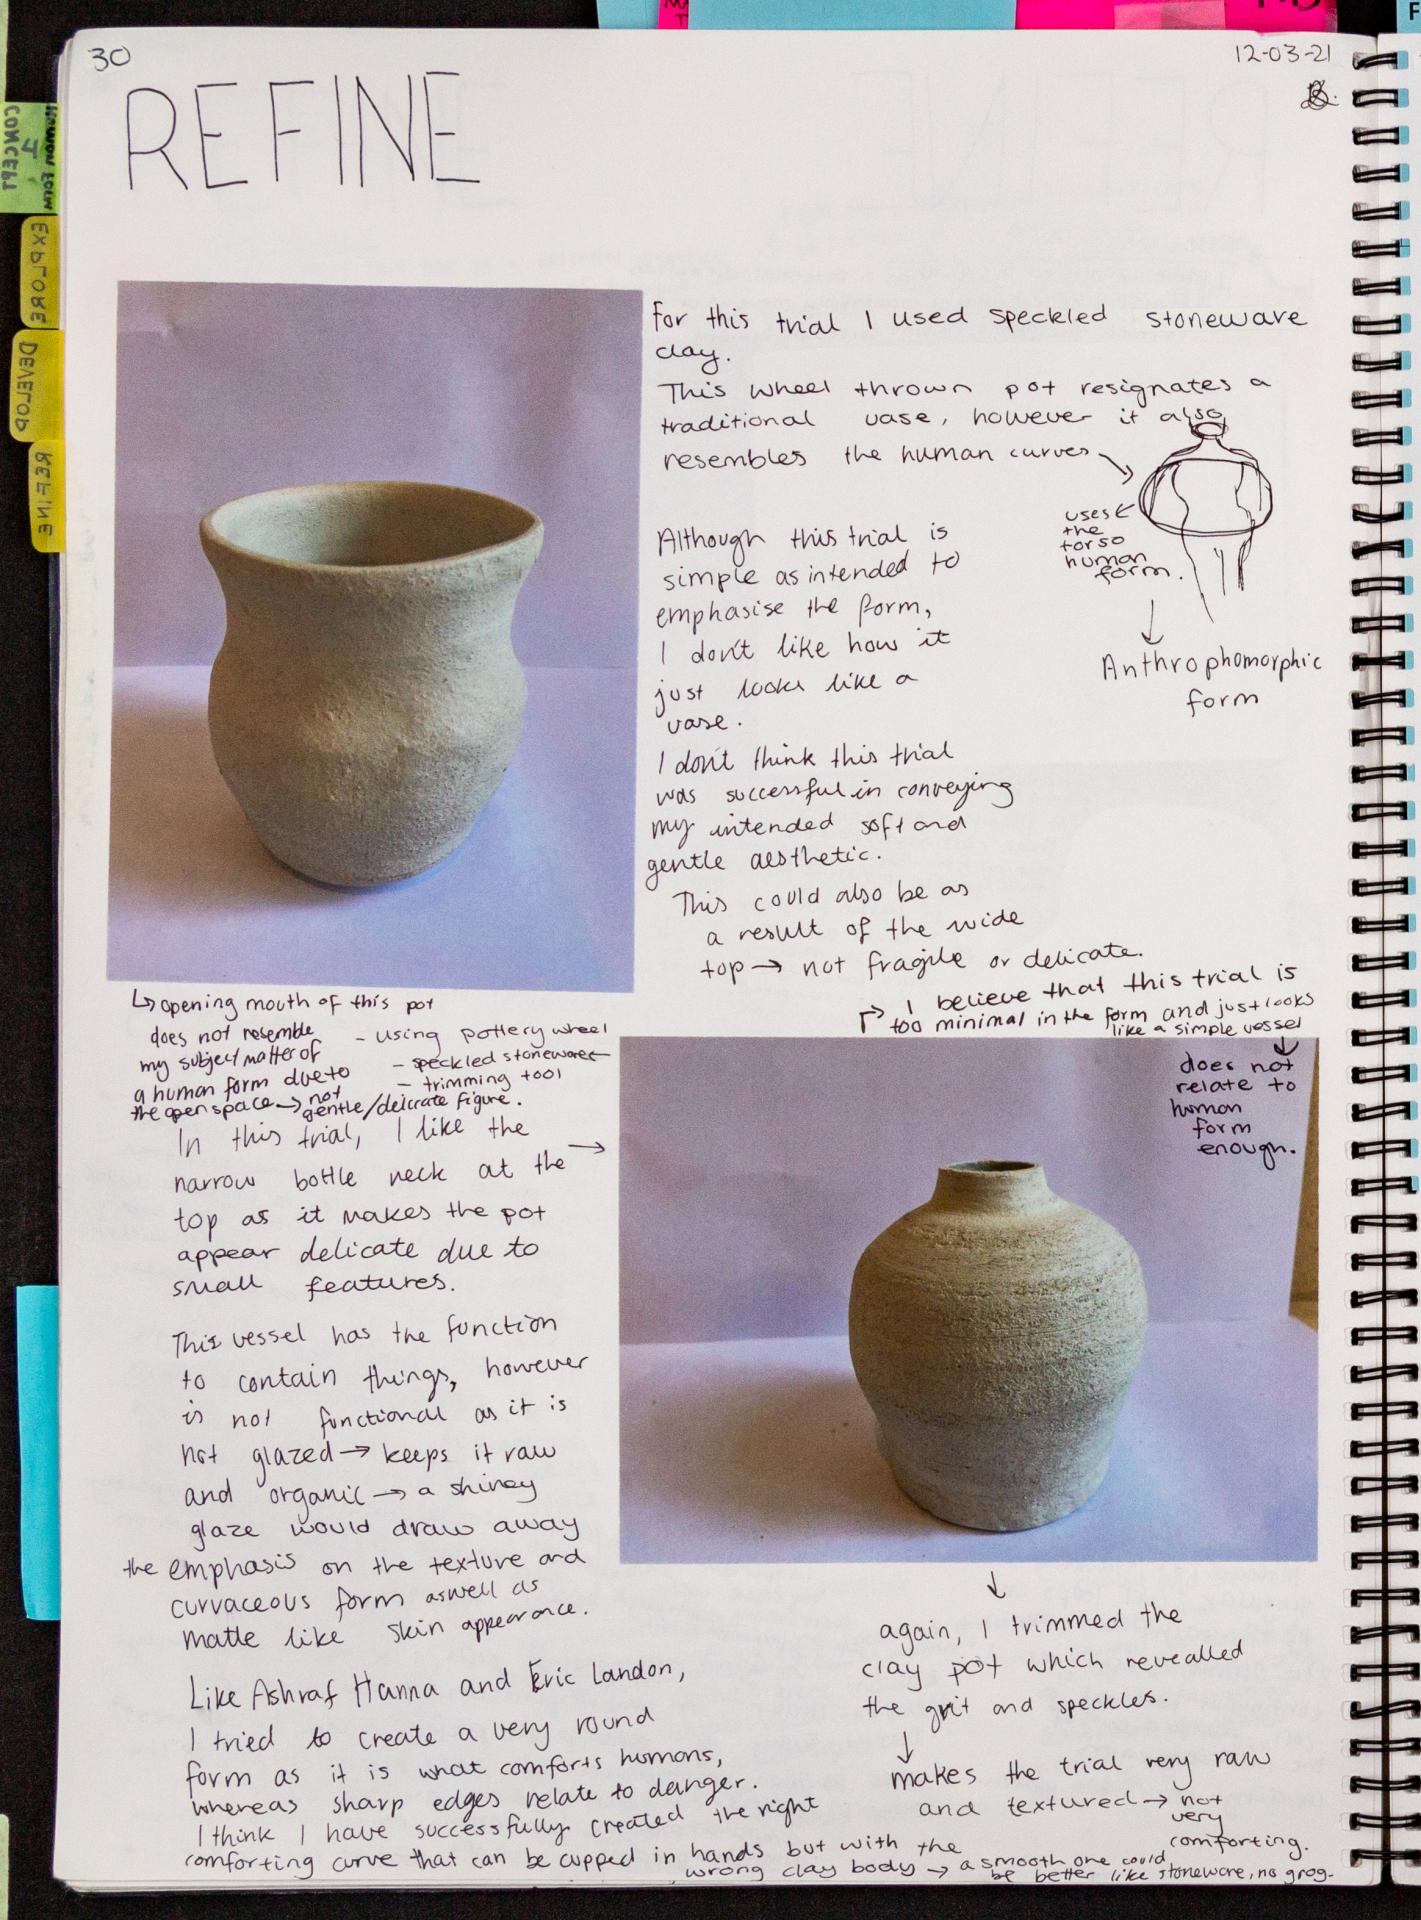 30
12-03-21
REFINE
CONCEPT
4
EXPLORE
DEVELOP
REFINE
for this trial I used speckled stoneware
clay.
This wheel thrown pot resignates a
traditional vase, however it also
resembles the human curves
uses
the
torso
human
form.
Anthrophomorphic
form
Although this trial is
simple as intended to
emphasise the form,
I don't like how it
just looks like a
vase.
I don't think this trial
was successful in conveying
my intended soft and
gentle aesthetic.
This could also be as
a result of the wide
top → not fragile or delicate.
↳ opening mouth of this pot
does not resemble
my subject matter of
a human form due to
the open space → not
gentle/delicrate figure.
- using pottery wheel
- speckled stoneware
- trimming tool
I believe that this trial is
too minimal in the form and just looks
like a simple vessel
does not
relate to
human
form
enough.
In this trial, I like the →
narrow bottle neck at the
top as it makes the pot
appear delicate due to
small features.
This vessel has the function
to contain things, however
is not functional as it is
not glazed → keeps it raw
and organic → a shiney
glaze would draw away
the emphasis on the texture and
curvaceous form aswell as
matte like skin appearance.
Like Ashraf Hanna and Eric Landon,
I tried to create a very round
form as it is what comforts humans,
whereas sharp edges relate to danger.
I think I have successfully created the right
comforting curve that can be cupped in hands but with the
wrong clay body → a smooth one could
be better like stoneware, no grog.
↓
again, I trimmed the
clay pot which revealled
the grit and speckles.
↓
makes the trial very raw
and textured → not
very
comforting.